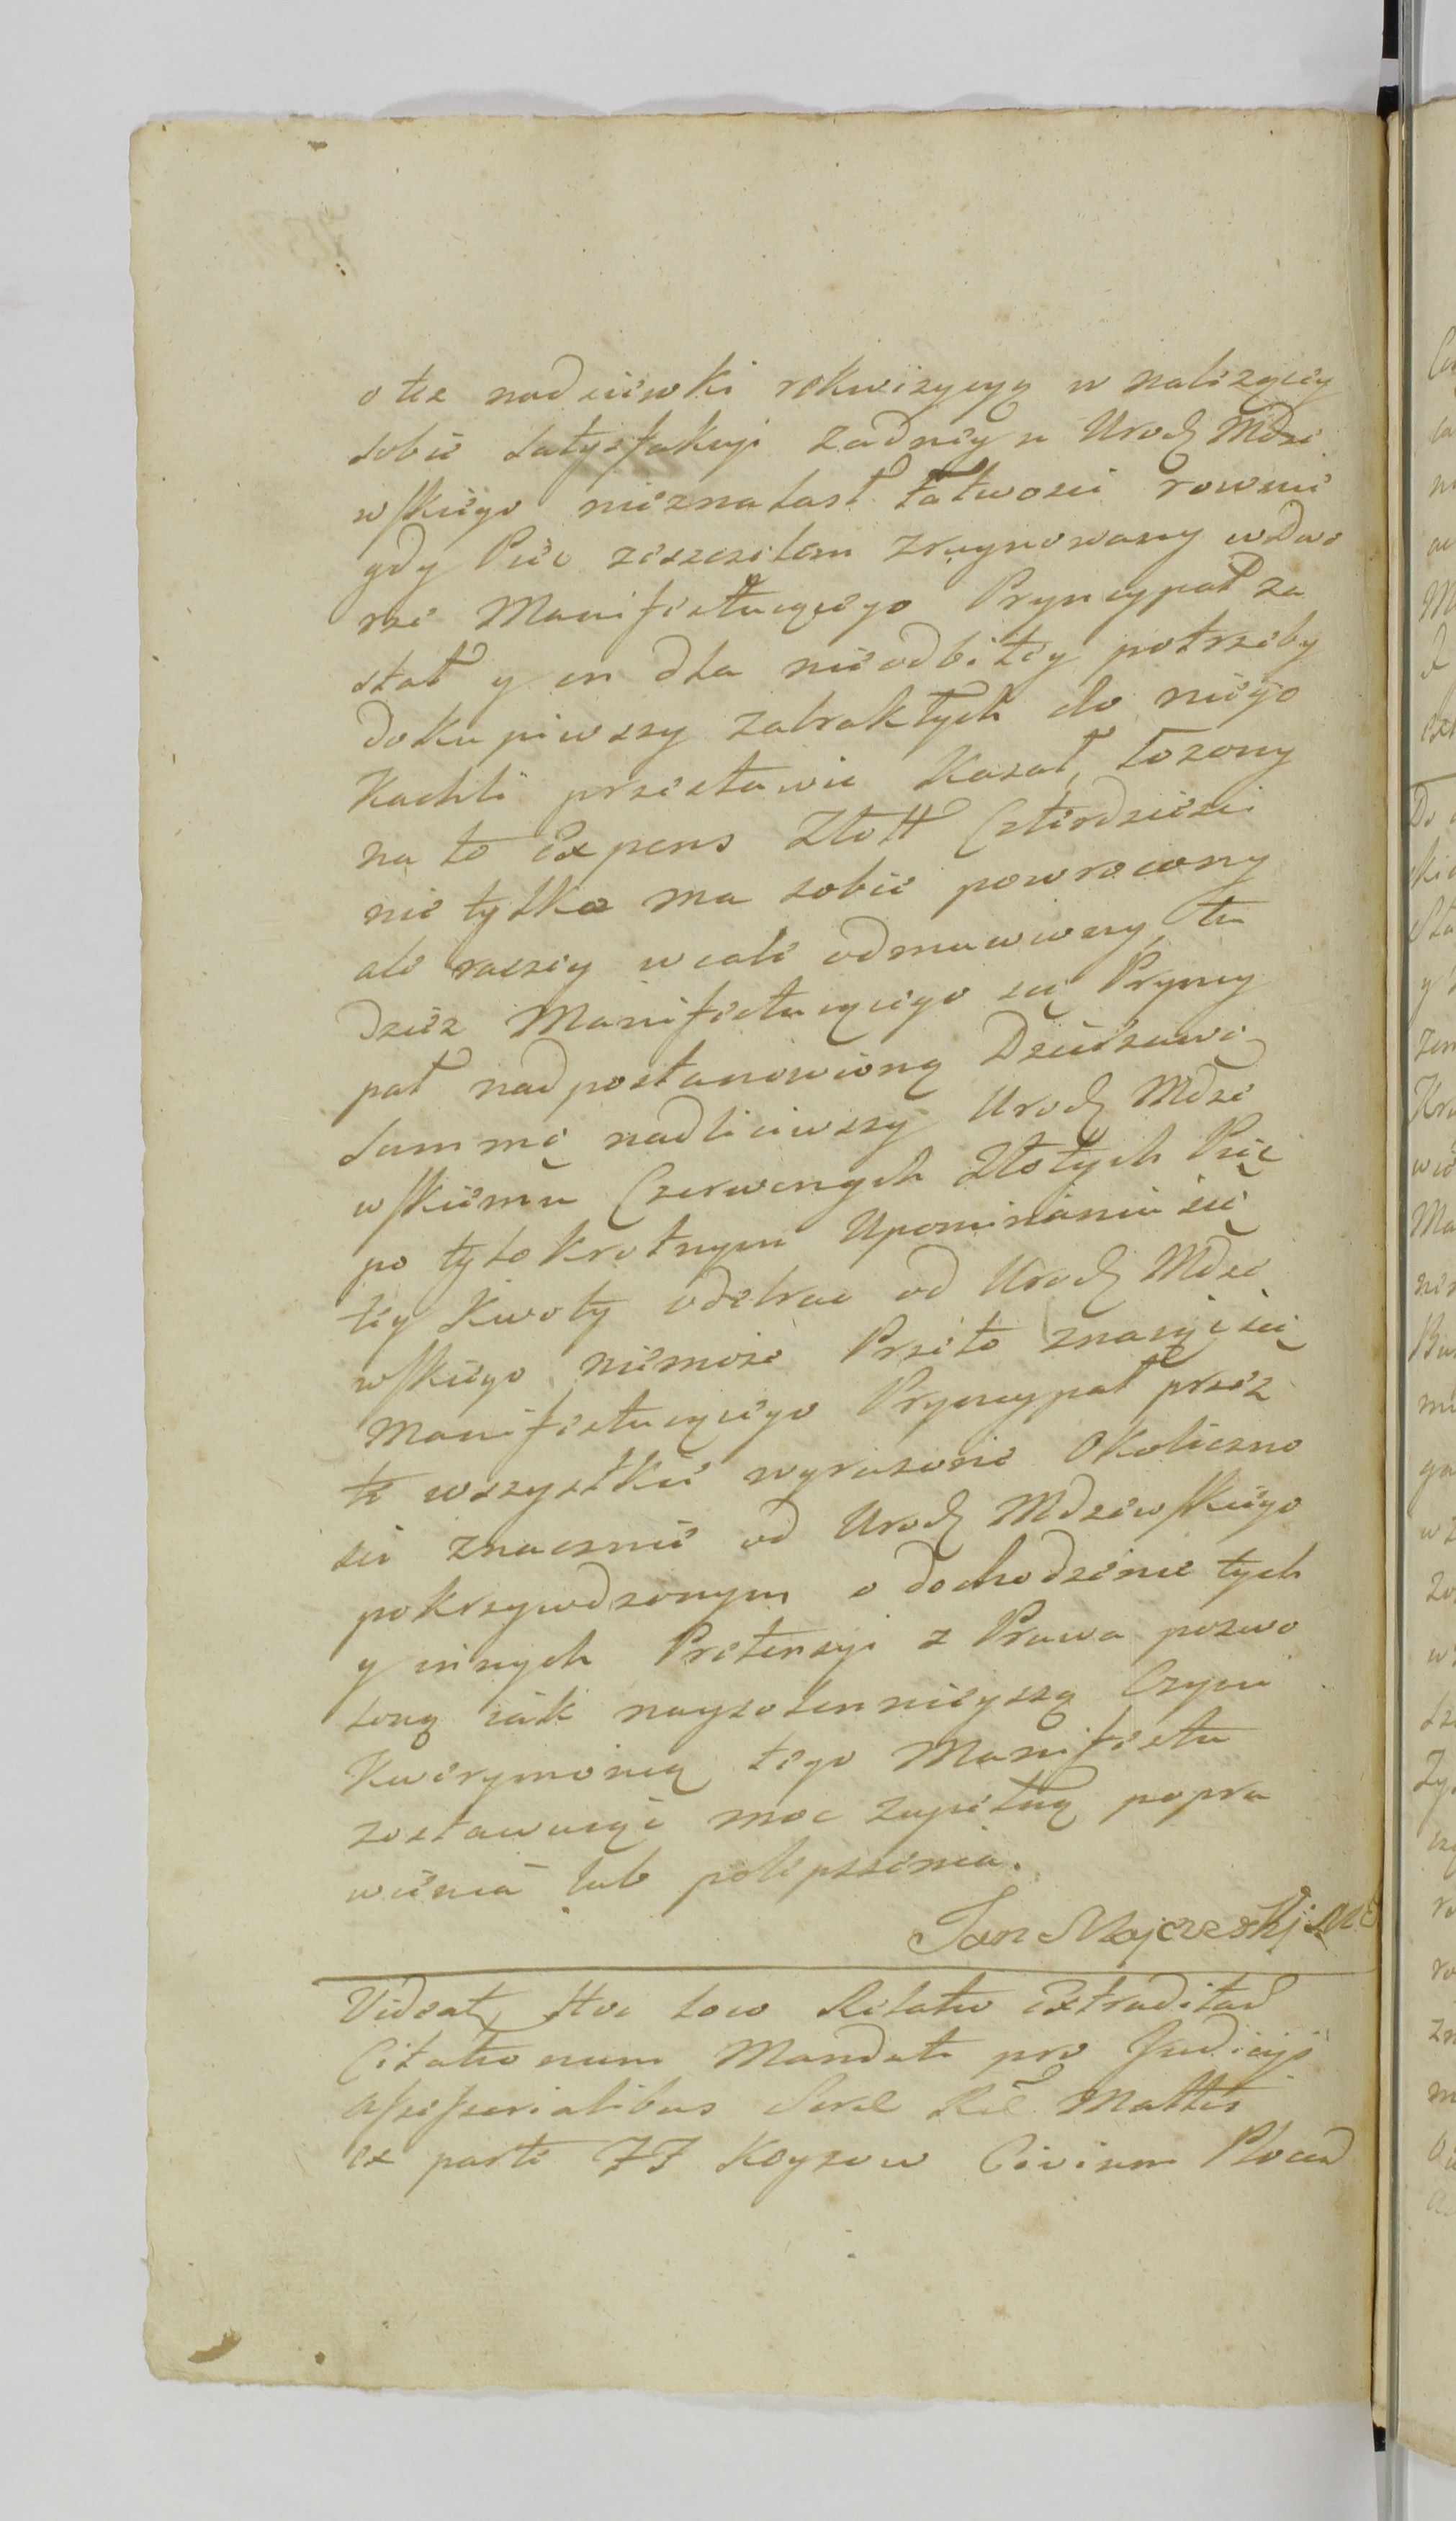 o też nadsiewki rekwizycyą w należącey
sobie satysfakcyi żadney u Urodz Mdze
wskiego nieznalasł łatwosci rownie
gdy Piec ze szczętem zruynowany w Dwo
rze Manifestuiącego Pryncypał za
stał y on dla nieodbitey potrzeby
dokupiwszy zabrakłych do niego
Kachli przestawic kazał, łozony
na to Expens Złott Czterdziesci
nie tylko ma sobie powrocony
ale raczey wcale odmuwiony, tu
dziez Manifestuiącego się Pryncy
pał nad postanowioną Dzierzawe
Summę nadliciwszy Urodz Mdze
wskiemu Czerwonych Złotych Pięć
po tylokrotnym Upominaniu się
tey kwoty odebrac od Urodz Mdze
wskiego niemoze Przeto znaiąc się
Manifestuiącego Pryncypał przez
te wszystkie wyrazone Okoliczno
sci znacznie od Urodz Mdzewskiego
pokrzywdzonym o dochodzenie tych
y innych Pretensyi z Prawa pozwo
loną iak nayzolennieyszą Czyni
Kwerymonią tego Manifestu
zostawuiąc moc zupełną popra
wienia lub polepszenia.
Jan Majczeski mp
Videat, Hoc loco Relatio Extraditar
Citationum Mandati pro Judicijs
Assessorialibus Sere Rēe Mattis
ex parte FF Keyzow Civium Plocen